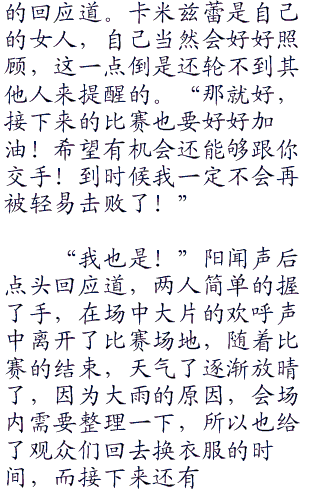 的回应道。卡米兹蕾是自己
的女人，自己当然会好好照
顾，这一点倒是还轮不到其
他人来提醒的。“那就好，
接下来的比赛也要好好加
油！希望有机会还能够跟你
交手！到时候我一定不会再
被轻易击败了！”
“我也是！”阳闻声后
点头回应道，两人简单的握
了手，在场中大片的欢呼声
中离开了比赛场地，随着比
赛的结束，天气了逐渐放晴
了，因为大雨的原因，会场
内需要整理一下，所以也给
了观众们回去换衣服的时
间，而接下来还有